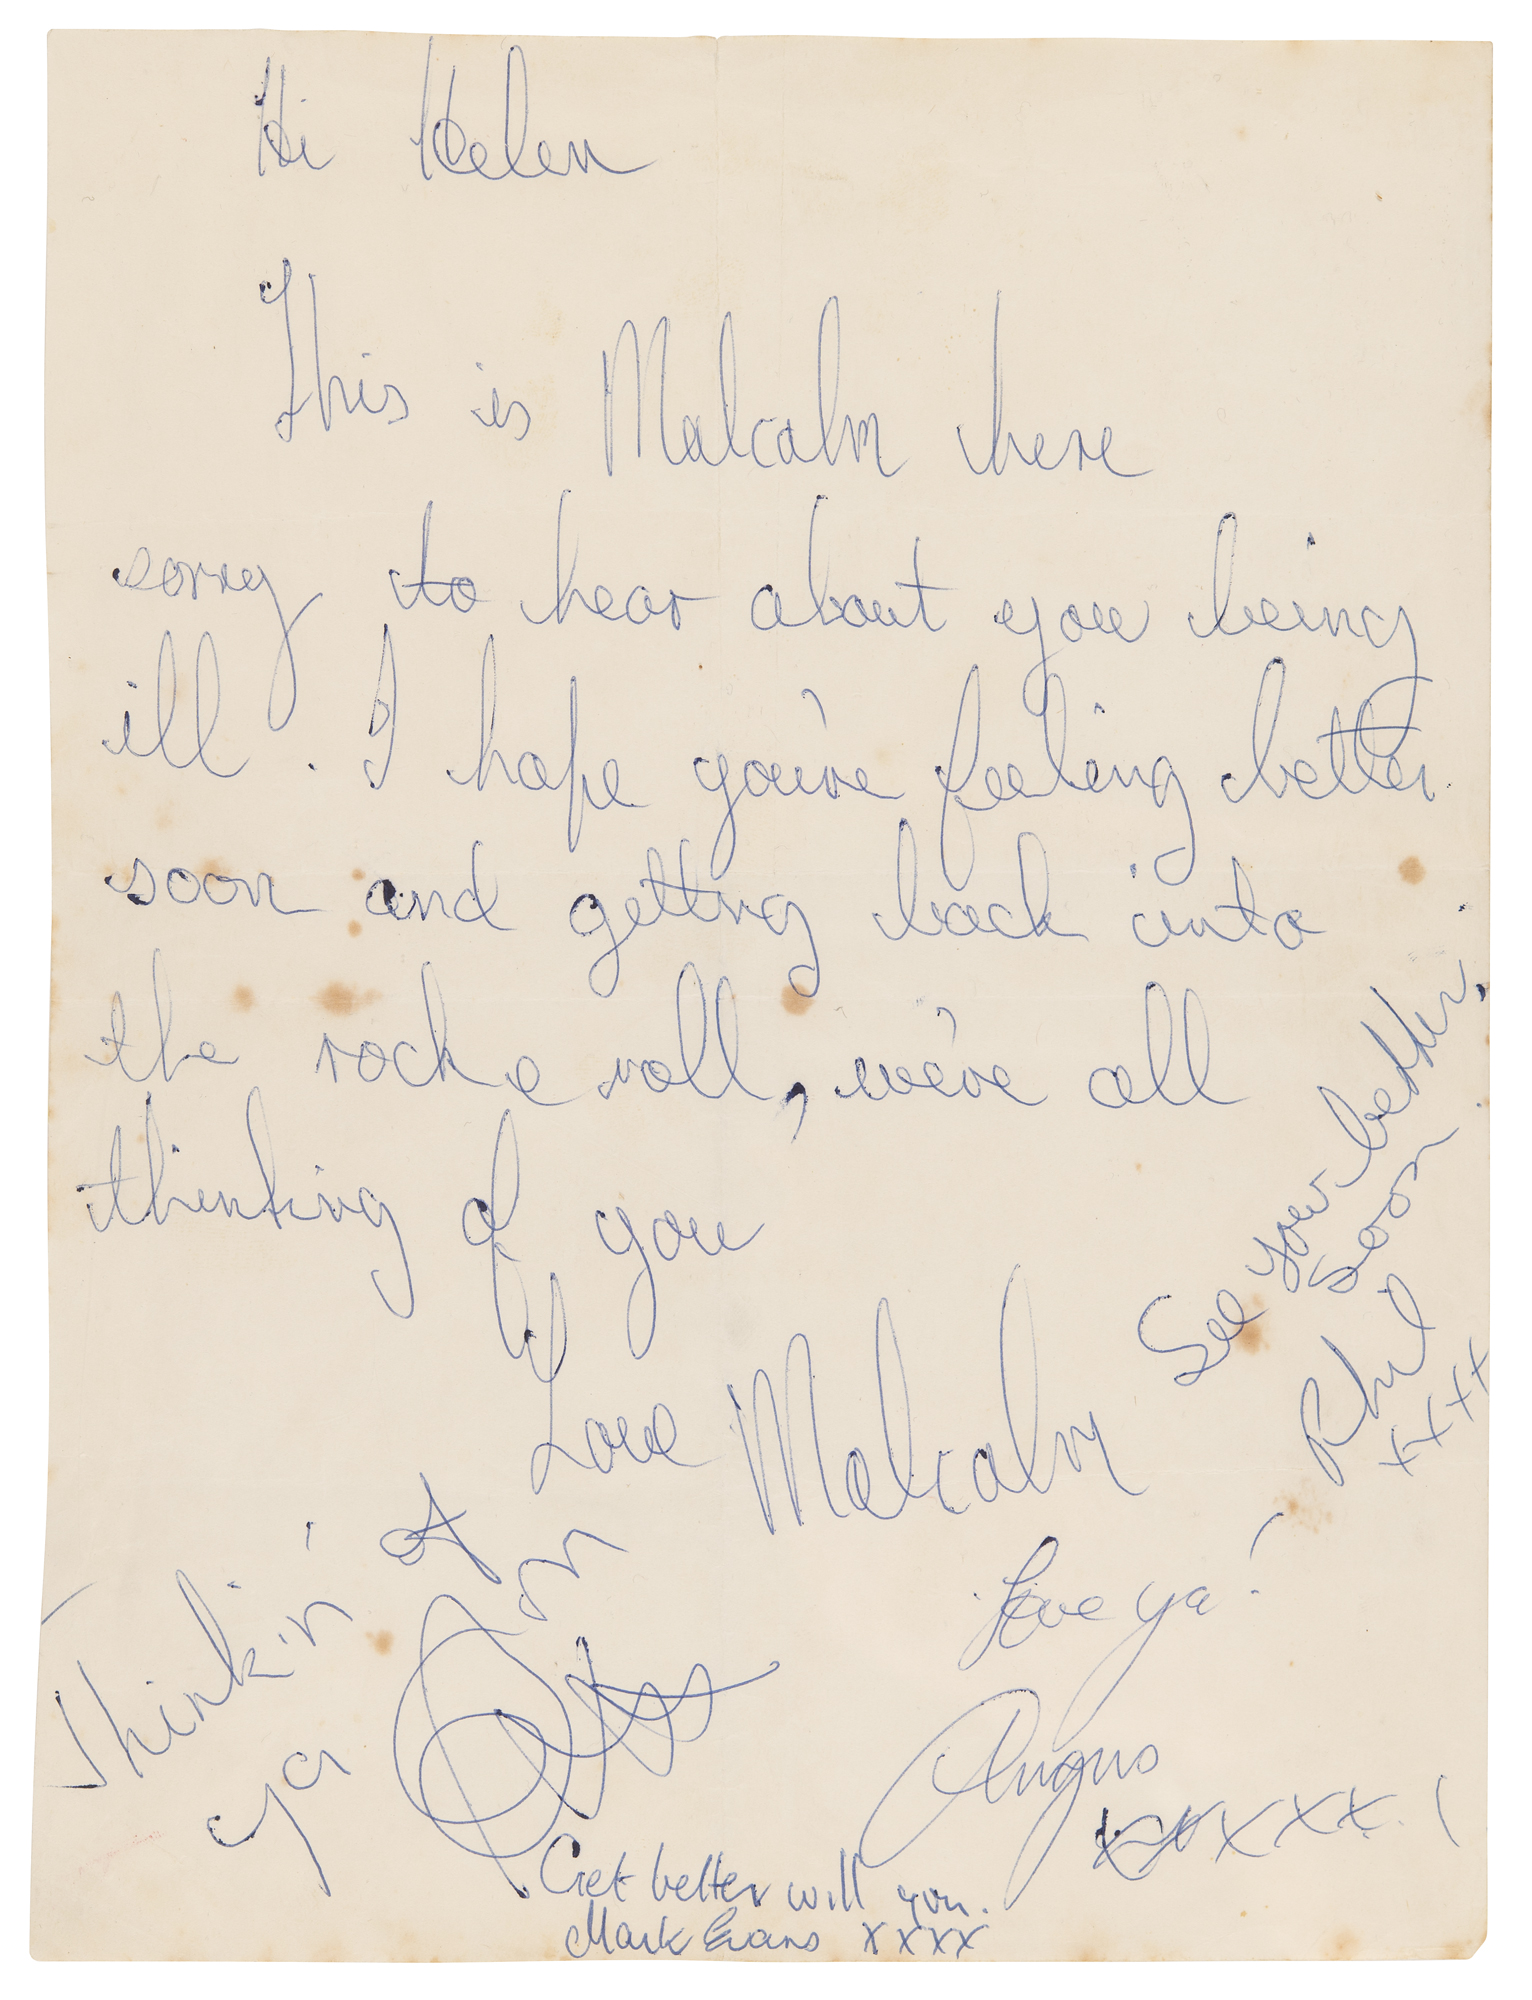 Hi Helen
This is Malcolm here
sorry to hear about you being
ill. I hope you're feeling better
soon and getting back into
the rock e roll, we're all
thinking of you
Love Malcolm
See your better
soon
Phil
xxxx
Thinkin'
of
ya
Ron
Love ya!
Angus
xxxxxx!
Get better will you.
Mark Evans xxxx